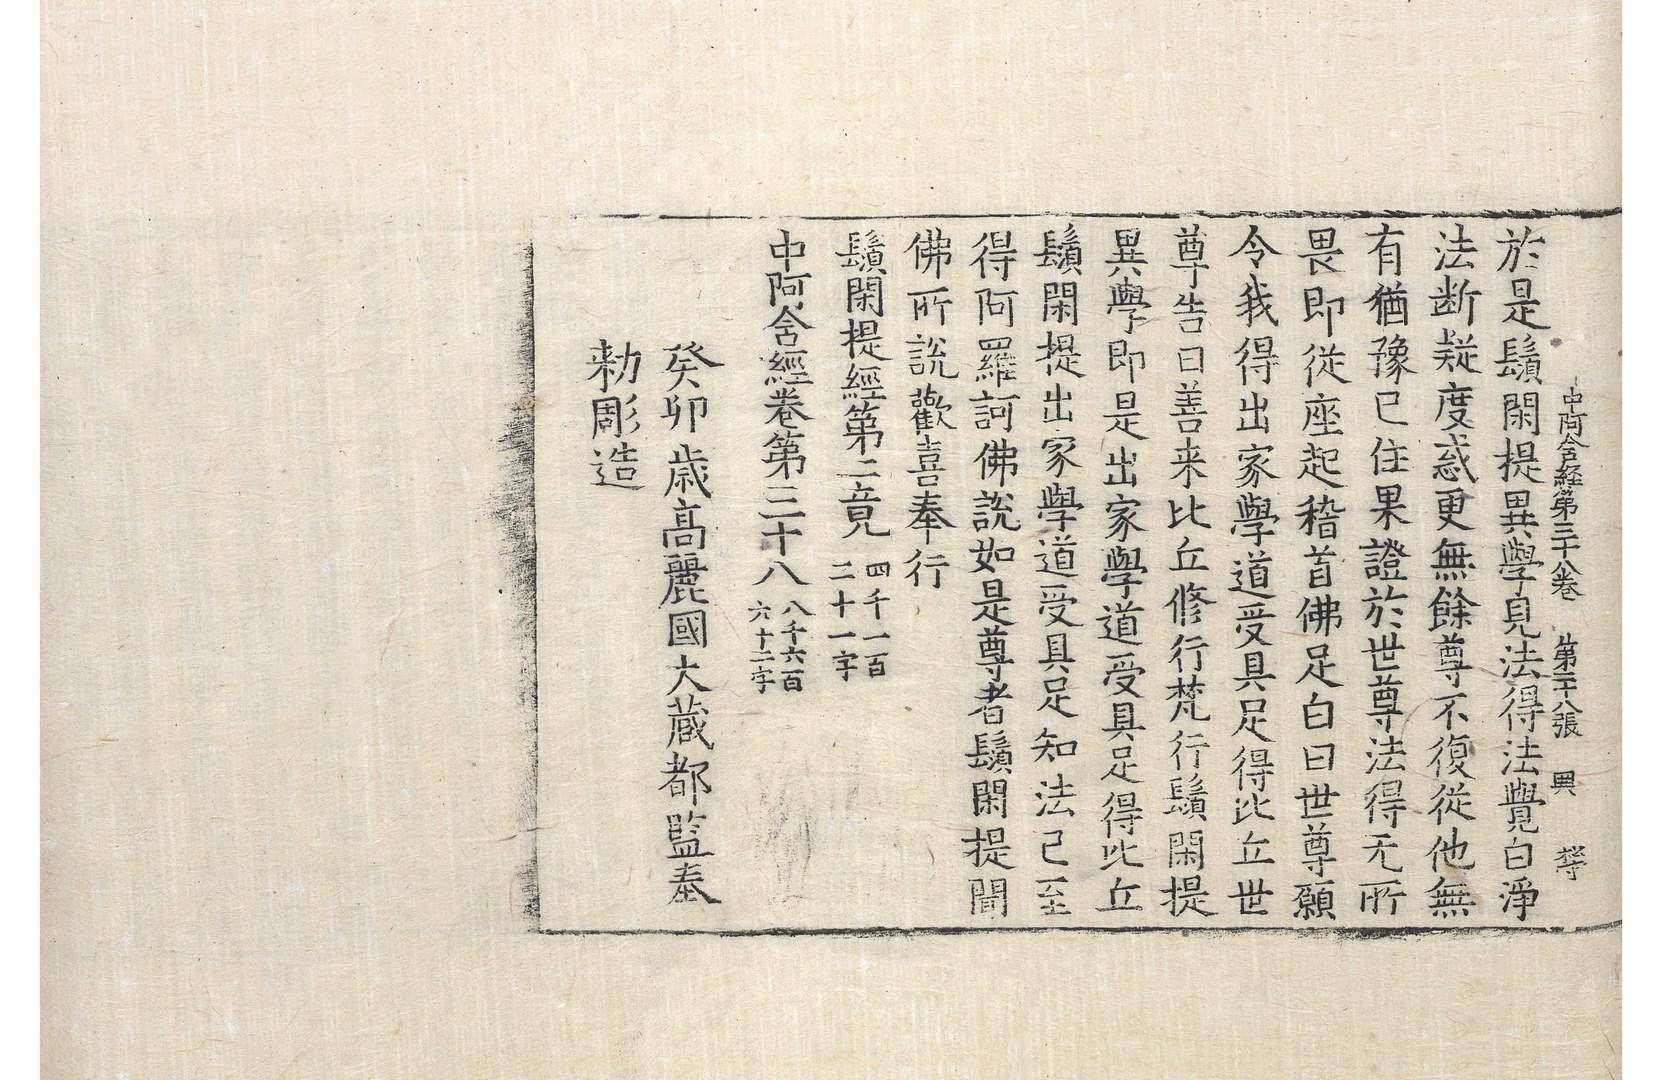 中阿含経第三十八巻 第二十八張 興
於是鬚閑提異學見法得法覺白淨
法断疑度惑更無餘尊不復従他無
有猶豫已住果證於世尊法得无所
畏即從座起稽首佛足白曰世尊願
令我得出家學道受具足得比丘世
尊告曰善来比丘修行梵行鬚閑提
異學即是出家學道受具足得比丘
鬚閑提出家學道受具足知法已至
得阿羅訶佛說如是尊者鬚閑提聞
佛所說歡喜奉行
鬚閑提經第二竟 四千一百二十一字
中阿含經卷第三十八 八千六百六十二字
癸卯歳高麗國大藏都監奉
勑彫造